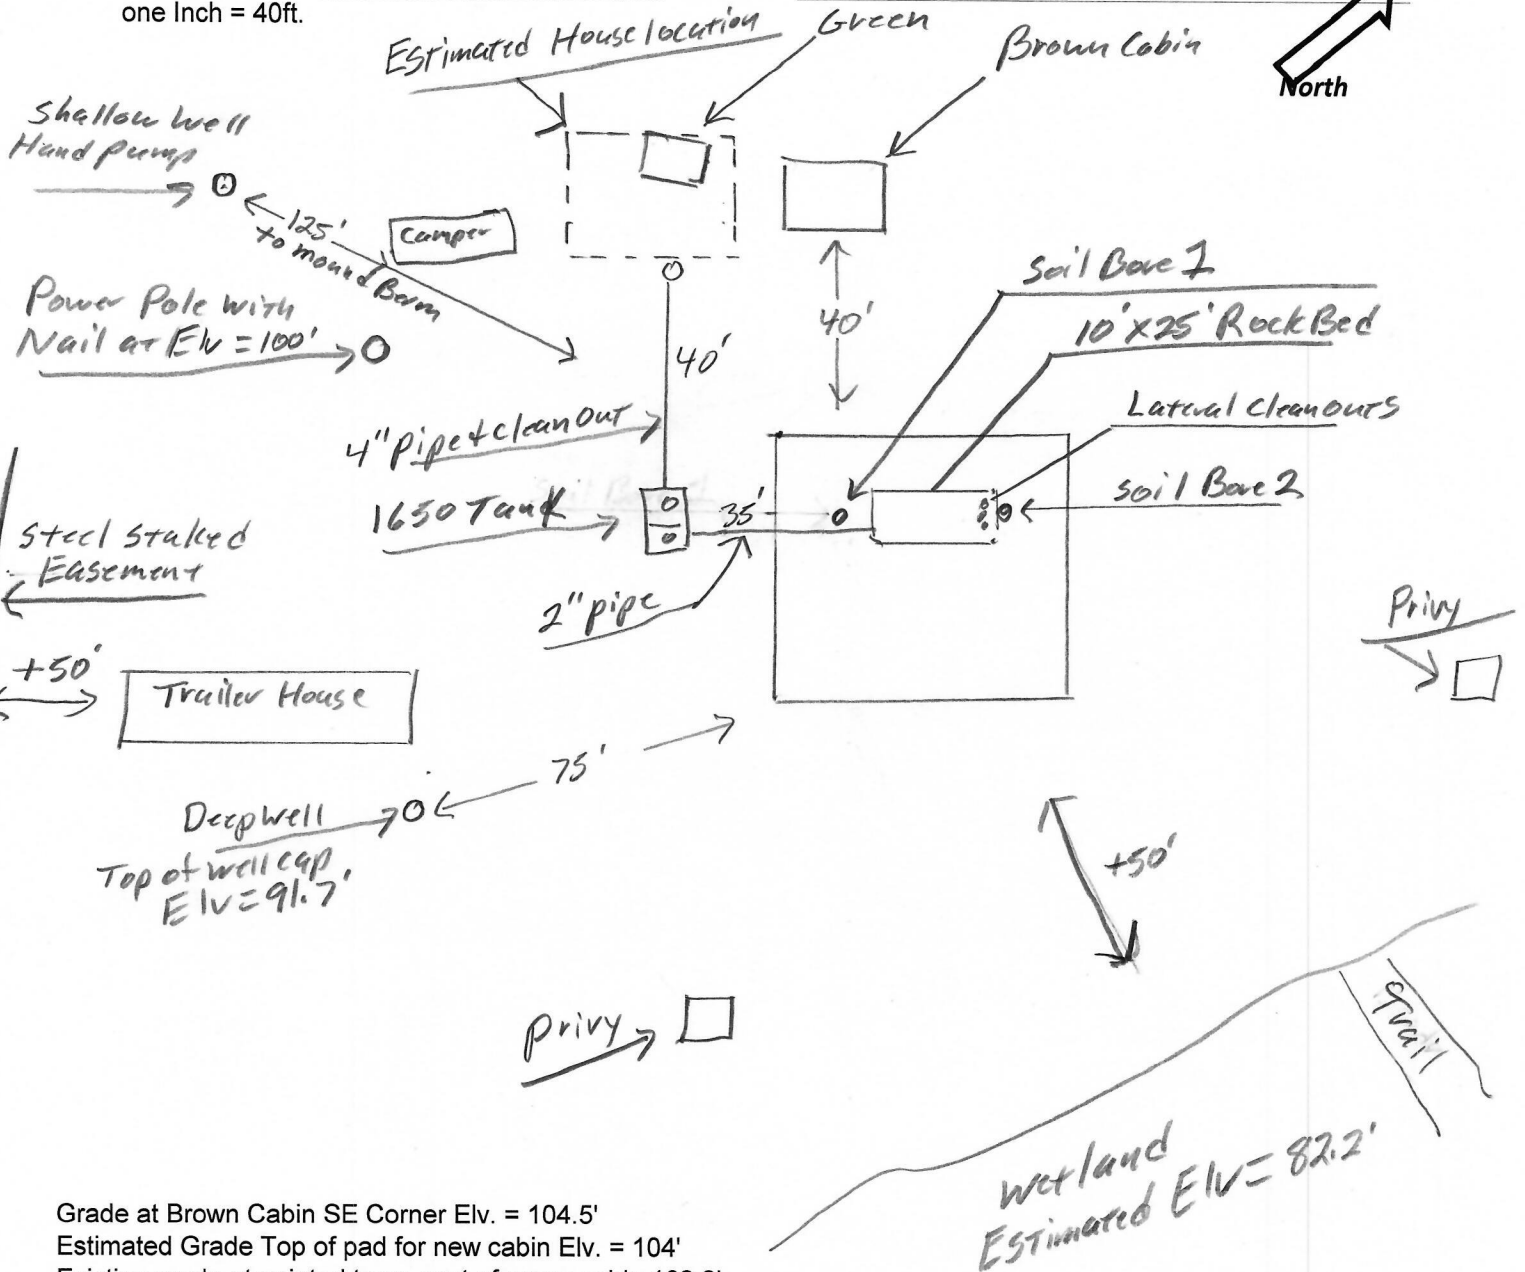 one Inch = 40ft.
Estimated House location
Green
Brown Cabin
North
Shallow Well
Hand Pump
125'
to mound Berm
Camper
Power Pole with
Nail at Elv = 100'
40'
40'
Soil Bore 1
10' X 25' Rock Bed
Lateral Cleanouts
Soil Bore 2
4" Pipe + Clean Out
1650 Tank
35'
2" pipe
Steel Staked
Easement
+50'
Trailer House
Privy
75'
Deep Well
Top of well cap
Elv = 91.7'
+50'
Privy
Trail
Wetland
Estimated Elv = 82.2'
Grade at Brown Cabin SE Corner Elv. = 104.5'
Estimated Grade Top of pad for new cabin Elv. = 104'